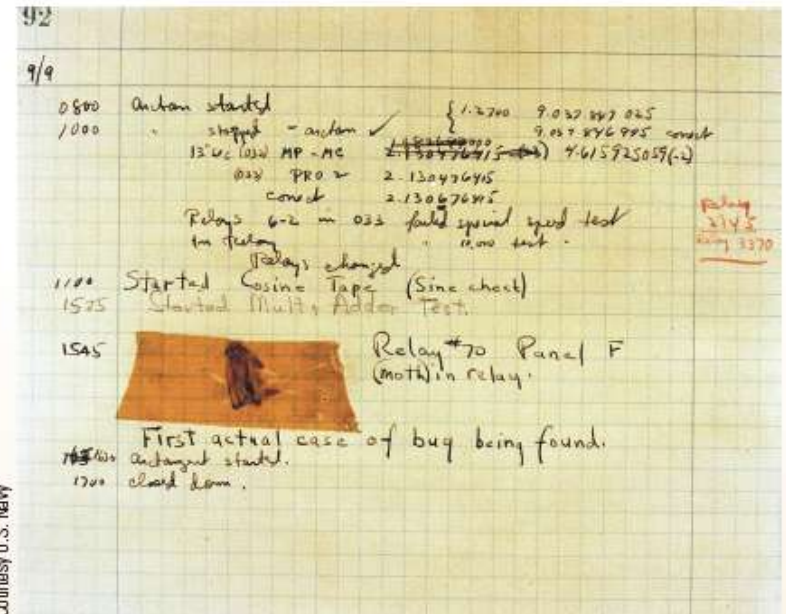 92
9/9
0800 antan started
1000 " stopped - antan ✓
{ 1.2700 9.037 847 025
9.037 846 995 correct
13"uc (032) MP - MC 2.130476415 4.615925059(-2)
(033) PRO 2 2.130476415
correct 2.130676415
Relays 6-2 in 033 failed special speed test
in relay " 10.000 test .
Relays changed
Relay
2145
Relay 3370
1100 Started Cosine Tape (Sine check)
1525 Started Mult+ Adder Test.
1545 Relay #70 Panel F
(moth) in relay.
First actual case of bug being found.
1630 antangent started.
1700 closed down.
Courtesy U.S. Navy